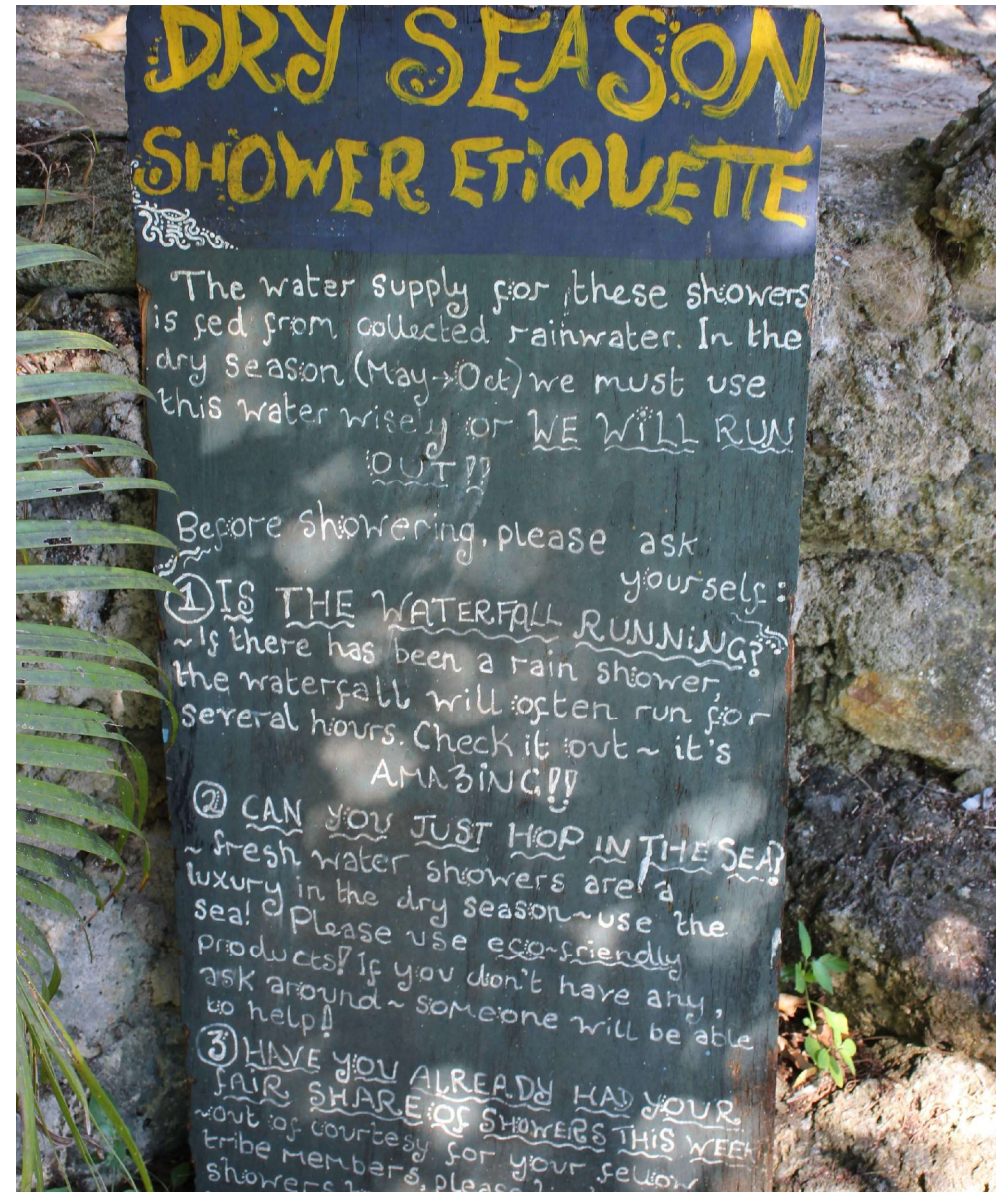 DRY SEASON
SHOWER ETiQUETTE
The water supply for these showers
is fed from collected rainwater. In the
dry season (May→Oct) we must use
this water wisely or WE WiLL RUN
OUT!!
Before showering, please ask
yourself:
① IS THE WATERFALL RUNNiNG?
~If there has been a rain shower,
the waterfall will often run for
several hours. Check it out ~ it's
AMAZiNG!!
② CAN YOU JUST HOP IN THE SEA?
~ fresh water showers are a
luxury in the dry season~use the
sea! Please use eco-friendly
products! If you don't have any,
ask around~ someone will be able
to help!
③ HAVE YOU ALREADY HAD YOUR
FAIR SHARE OF SHOWERS THIS WEEK
~out of courtesy for your fellow
tribe members, please
showers